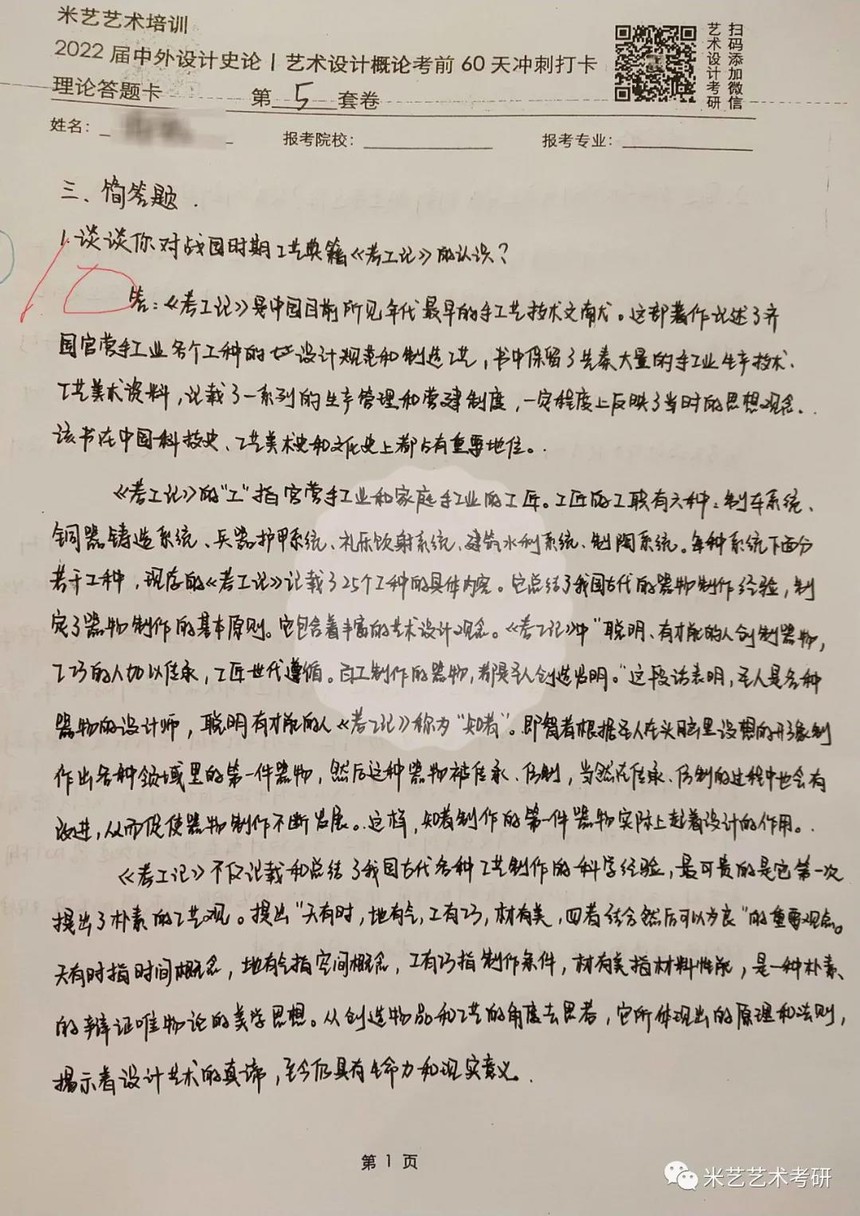 米艺艺术培训
2022届中外设计史论 | 艺术设计概论考前60天冲刺打卡
理论答题卡 第 5 套卷
扫码添加微信
艺术设计考研
姓名: 报考院校: 报考专业:
三、简答题.
1.谈谈你对战国时期工艺典籍《考工记》的认识?
答:《考工记》是中国目前所见年代最早的手工艺技术文献。这部著作记述了齐
国官营手工业各个工种的 设计规范和制造工艺,书中保留了先秦大量的手工业生产技术、
工艺美术资料,记载了一系列的生产管理和营建制度,一定程度上反映了当时的思想观念.
该书在中国科技史、工艺美术史和文化史上都占有重要地位。
《考工记》的"工"指官营手工业和家庭手工业的工匠。工匠的工联有六种:制车系统、
铜器铸造系统、兵器护甲系统、礼乐饮射系统、建筑水利系统、制陶系统。每种系统下面分
若干工种,现存的《考工记》记载了25个工种的具体内容。它总结了我国古代的器物制作经验,制
定了器物制作的基本原则。它包含着丰富的艺术设计观念。《考工记》中"聪明、有才能的人创制器物,
工巧的人加以传承,工匠世代遵循。百工制作的器物,都是圣人创造发明。"这段话表明,圣人是各种
器物的设计师,聪明有才能的人《考工记》称为"知者"。即智者根据圣人在头脑里设想的形象制
作出各种领域里的第一件器物,然后这种器物被传承、仿制,当然在传承、仿制的过程中也会有
改进,从而促使器物制作不断发展。这样,知者制作的第一件器物实际上起着设计的作用。
《考工记》不仅记载和总结了我国古代各种工艺制作的科学经验,最可贵的是它第一次
提出了朴素的工艺观。提出"天有时,地有气,工有巧,材有美,四者结合然后可以为良"的重要观念。
天有时指时间概念,地有气指空间概念,工有巧指制作条件,材有美指材料性能,是一种朴素
的辩证唯物论的美学思想。从创造物品和工艺的角度去思考,它所体现出的原理和法则,
揭示着设计艺术的真谛,至今仍具有生命力和现实意义.
第 1 页
米艺艺术考研